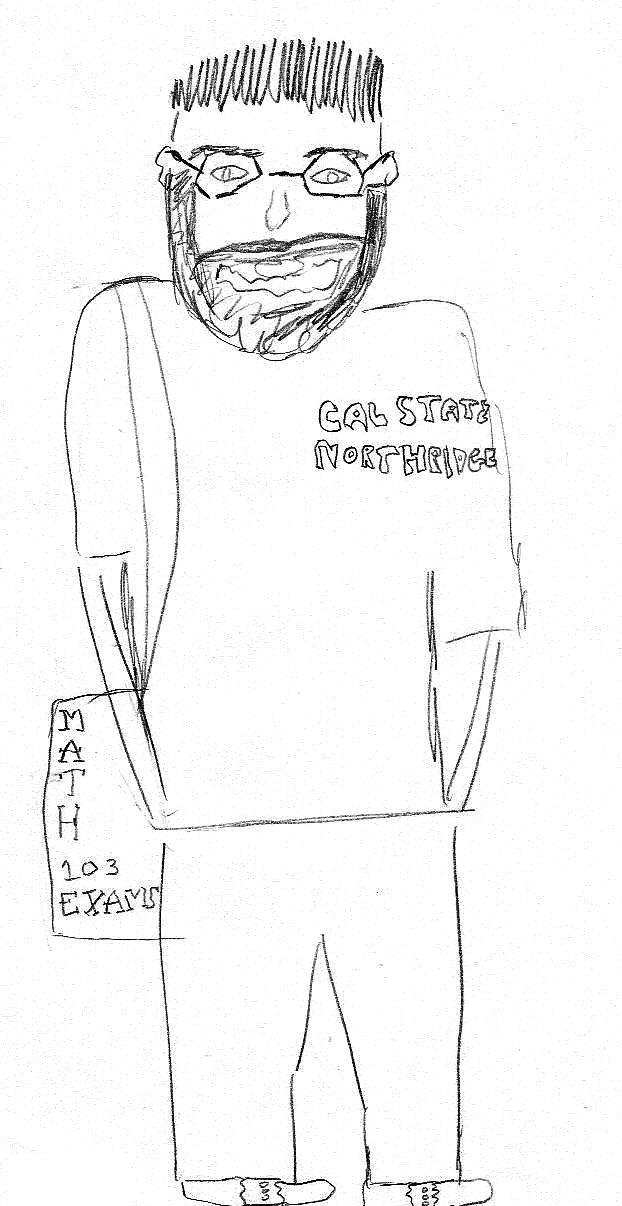 CAL STATE
NORTHRIDGE
M
A
T
H
103
EXAMS